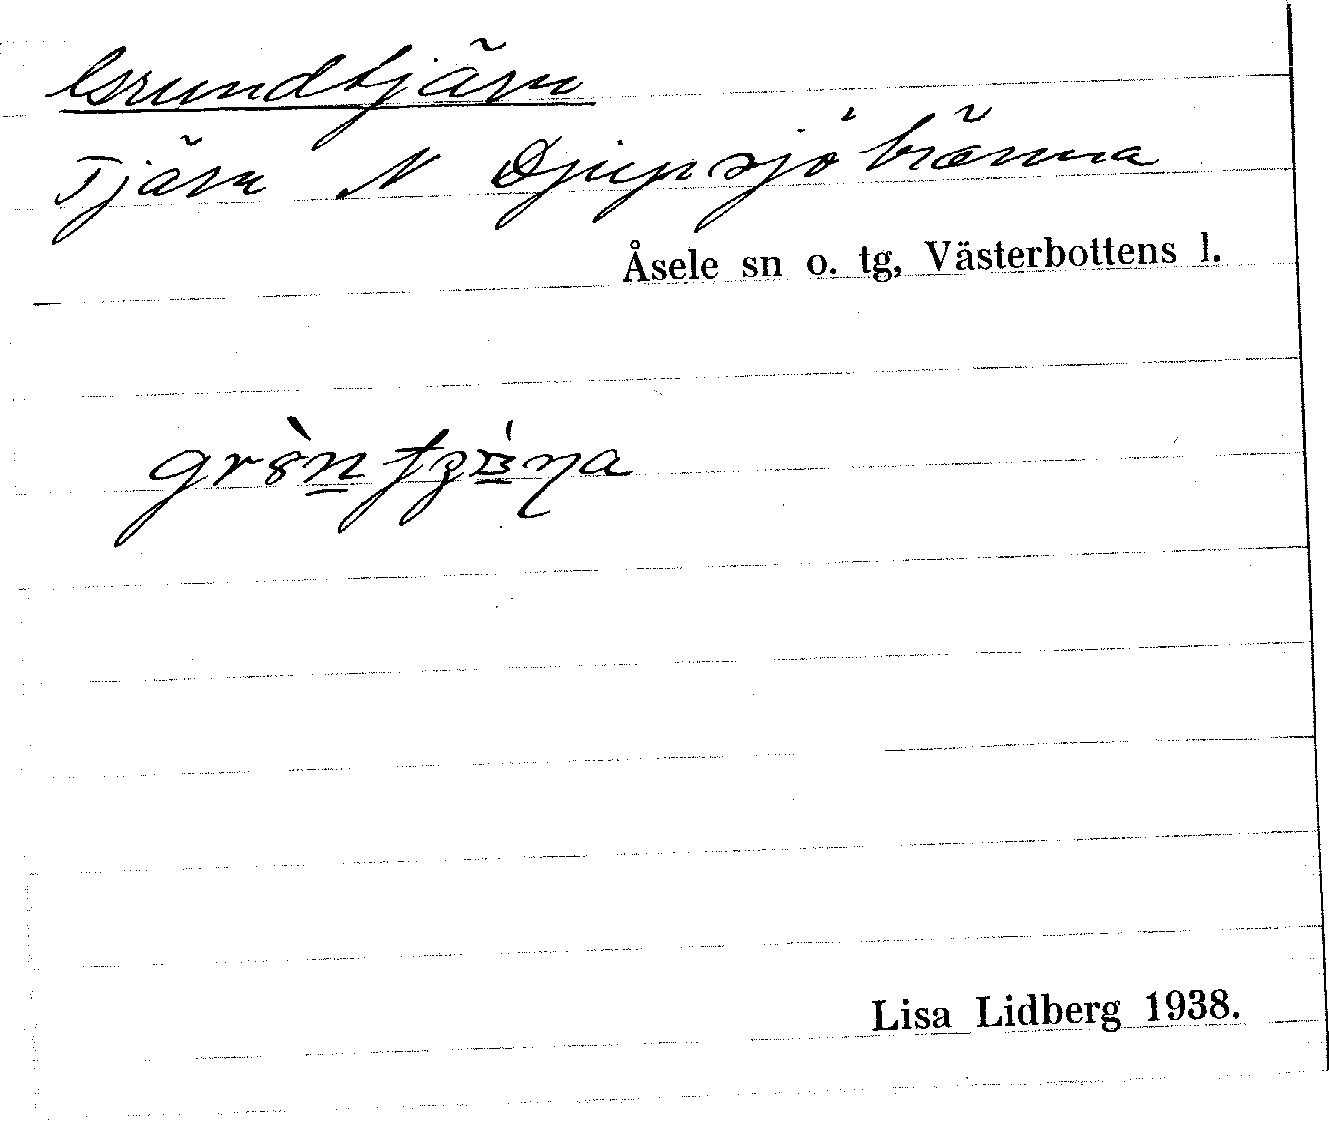 Grundtjärn
Tjärn N Djupsjöbränna
Åsele sn o. tg, Västerbottens l.
Lisa Lidberg 1938.